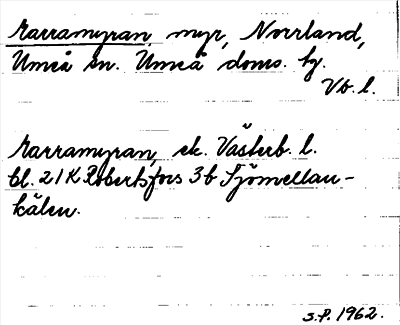 Rarramyran, myr, Norrland,
Umeå sn. Umeå doms. hg.
Vb. l.
Rarramyran, ek. Västerb. l.
bl. 21K Robertsfors 3b Sjömellan-
kälen.
S.P. 1962.